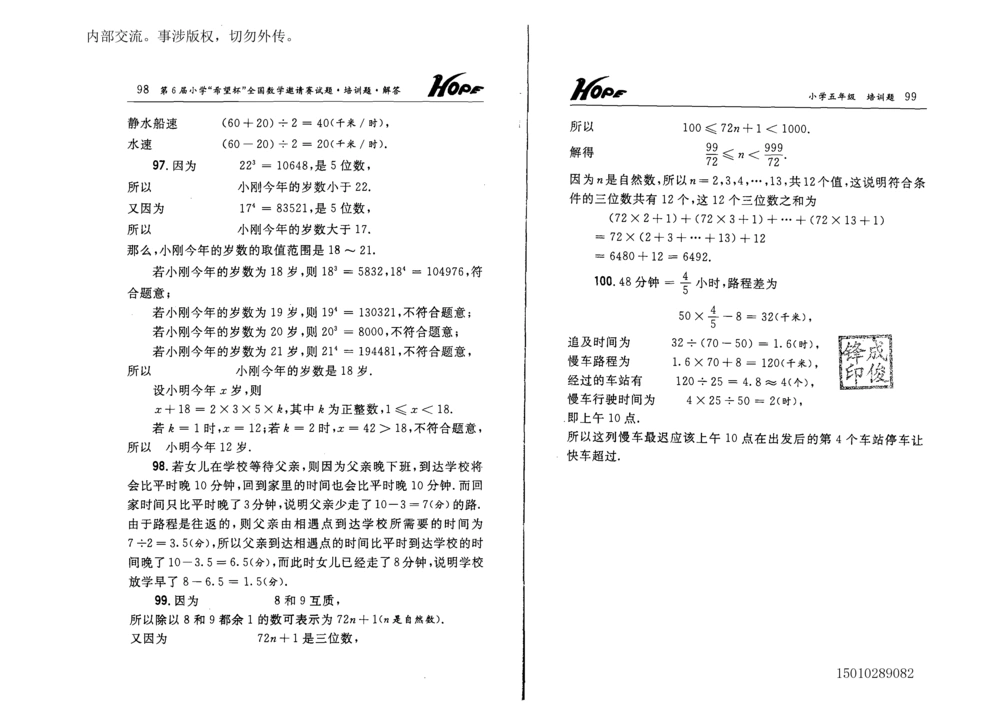 内部交流。事涉版权，切勿外传。
98 第6届小学“希望杯”全国数学邀请赛试题·培训题·解答 HOPE
静水船速 (60+20)÷2=40(千米/时),
水速 (60-20)÷2=20(千米/时).
97. 因为 22³=10648,是5位数,
所以 小刚今年的岁数小于22.
又因为 17⁴=83521,是5位数,
所以 小刚今年的岁数大于17.
那么,小刚今年的岁数的取值范围是18～21.
若小刚今年的岁数为18岁,则18³=5832,18⁴=104976,符
合题意;
若小刚今年的岁数为19岁,则19⁴=130321,不符合题意;
若小刚今年的岁数为20岁,则20³=8000,不符合题意;
若小刚今年的岁数为21岁,则21⁴=194481,不符合题意,
所以 小刚今年的岁数是18岁.
设小明今年x岁,则
x+18=2×3×5×k,其中k为正整数,1⩽x<18.
若k=1时,x=12;若k=2时,x=42>18,不符合题意,
所以 小明今年12岁.
98. 若女儿在学校等待父亲,则因为父亲晚下班,到达学校将
会比平时晚10分钟,回到家里的时间也会比平时晚10分钟.而回
家时间只比平时晚了3分钟,说明父亲少走了10-3=7(分)的路.
由于路程是往返的,则父亲由相遇点到达学校所需要的时间为
7÷2=3.5(分),所以父亲到达相遇点的时间比平时到达学校的时
间晚了10-3.5=6.5(分),而此时女儿已经走了8分钟,说明学校
放学早了8-6.5=1.5(分).
99. 因为 8和9互质,
所以除以8和9都余1的数可表示为72n+1(n是自然数).
又因为 72n+1是三位数,
HOPE 小学五年级 培训题 99
所以 100⩽72n+1<1000.
解得 99/72⩽n<999/72.
因为n是自然数,所以n=2,3,4,…,13,共12个值,这说明符合条
件的三位数共有12个,这12个三位数之和为
(72×2+1)+(72×3+1)+…+(72×13+1)
=72×(2+3+…+13)+12
=6480+12=6492.
100. 48分钟=4/5小时,路程差为
50×4/5-8=32(千米),
追及时间为 32÷(70-50)=1.6(时),
慢车路程为 1.6×70+8=120(千米),
经过的车站有 120÷25=4.8≈4(个),
慢车行驶时间为 4×25÷50=2(时),
即上午10点.
所以这列慢车最迟应该上午10点在出发后的第4个车站停车让
快车超过.
成俊
锋印
15010289082